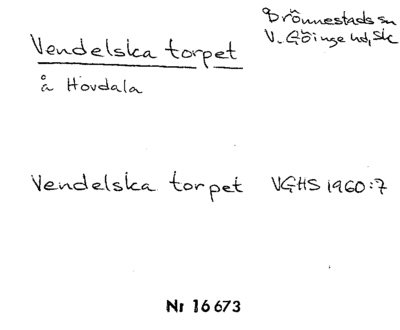 Brönnestads sn
V. Göinge hd, Sk
Vendelska torpet
å Hovdala
Vendelska torpet VGHS 1960:7
Nr 16673